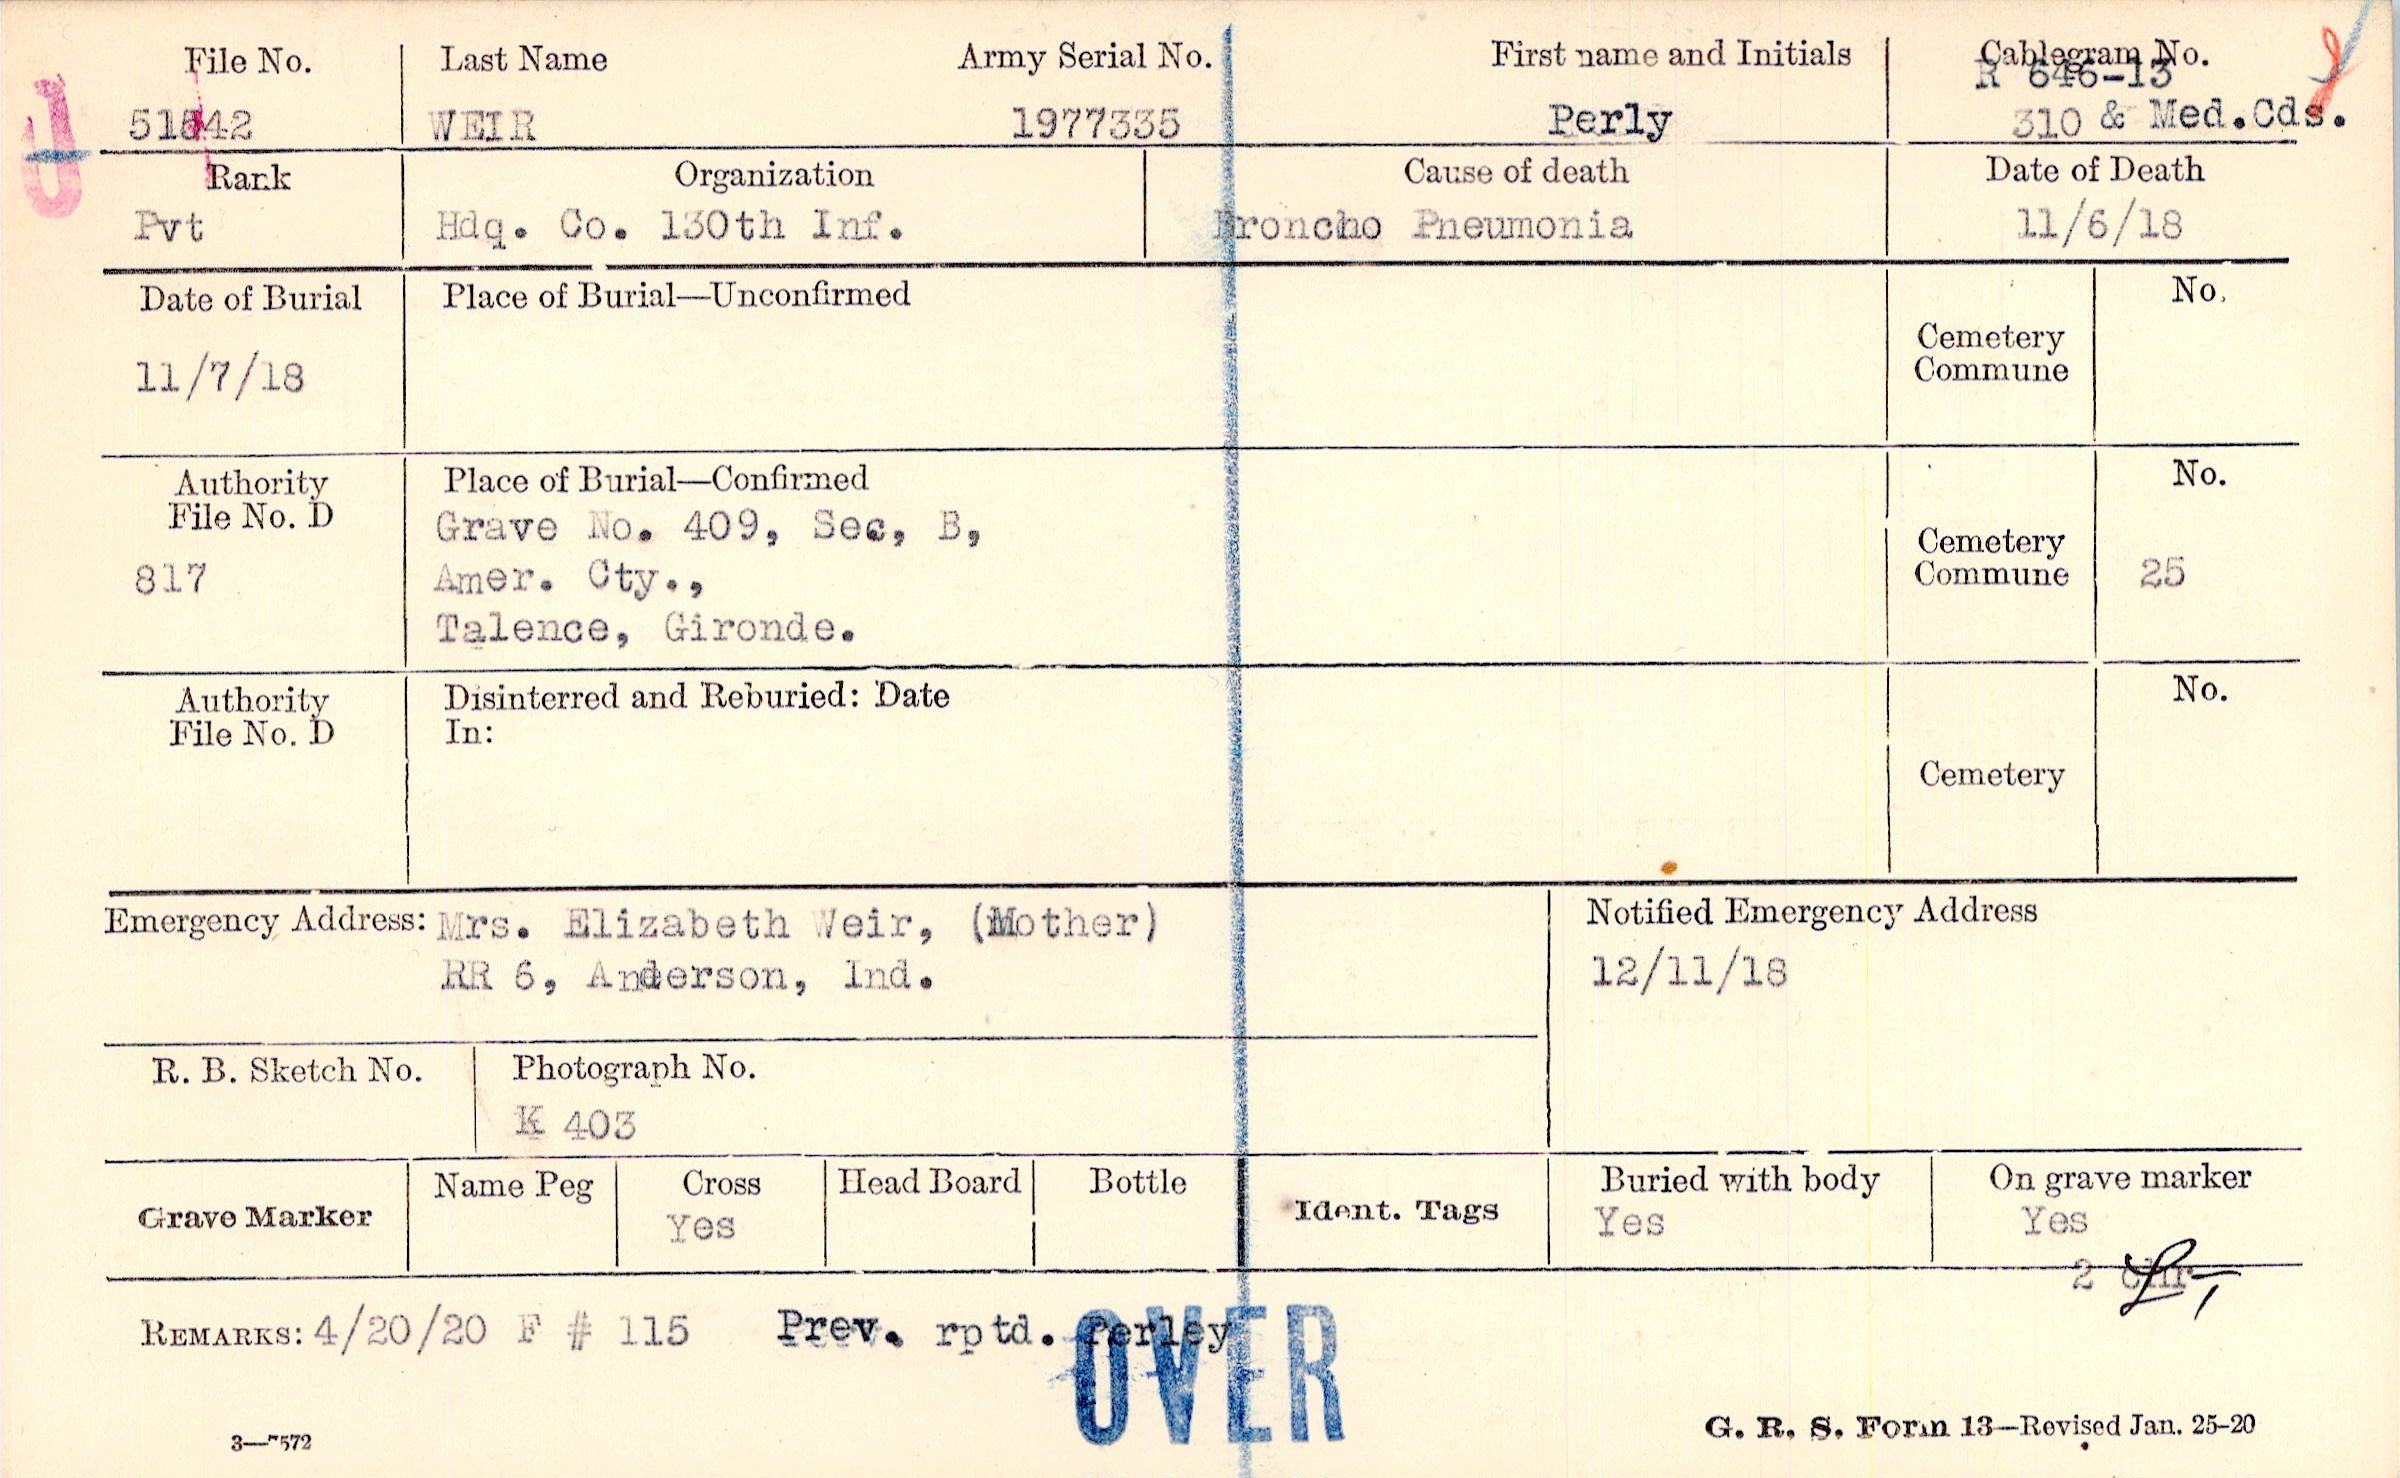 File No. Last Name Army Serial No. First name and Initials Cablegram No.
R 646-13
51542 WEIR 1977335 Perly 310 & Med.Cds.
Rank Organization Cause of death Date of Death
Pvt Hdq. Co. 130th Inf. Broncho Pneumonia 11/6/18
Date of Burial Place of Burial—Unconfirmed No.
11/7/18 Cemetery
Commune
Authority Place of Burial—Confirmed No.
File No. D Grave No. 409, Sec, B, Cemetery
817 Amer. Cty., Commune 25
Talence, Gironde.
Authority Disinterred and Reburied: Date No.
File No. D In:
Cemetery
Emergency Address: Mrs. Elizabeth Weir, (Mother) Notified Emergency Address
RR 6, Anderson, Ind. 12/11/18
R. B. Sketch No. Photograph No.
K 403
Grave Marker Name Peg Cross Head Board Bottle Ident. Tags Buried with body On grave marker
Yes Yes Yes
2
REMARKS: 4/20/20 F # 115 Prev. rptd. Perley
OVER
3—7572 G. R. S. Form 13—Revised Jan. 25-20